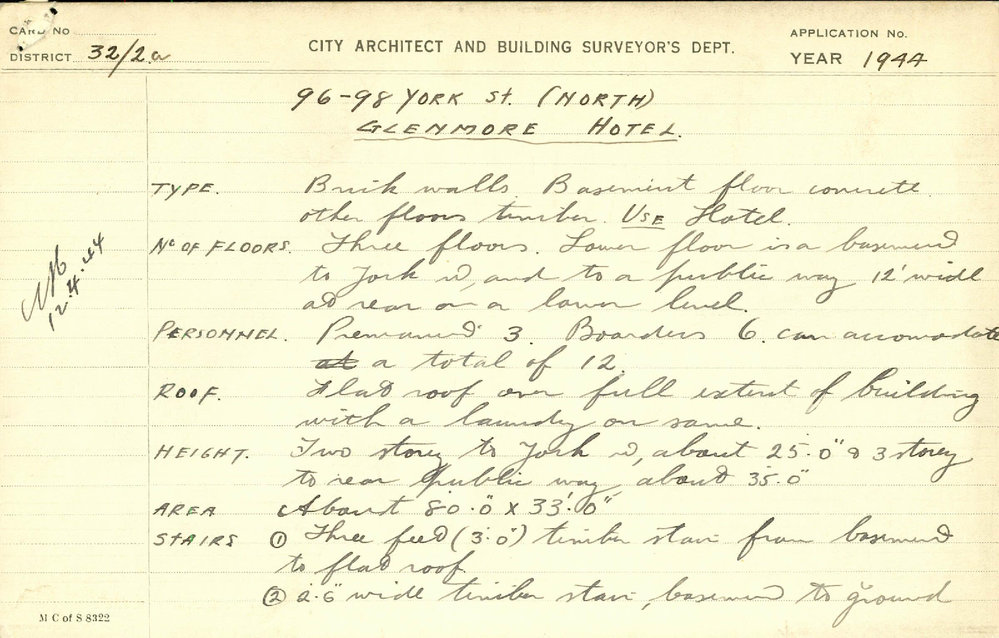 CARD NO
DISTRICT 32/2a
CITY ARCHITECT AND BUILDING SURVEYOR'S DEPT.
APPLICATION NO.
YEAR 1944
96-98 YORK St. (NORTH)
GLENMORE HOTEL.
TYPE. Brick walls. Basement floor concrete.
other floors timber. USE Hotel.
No OF FLOORS. Three floors. Lower floor is a basement
to York st, and to a public way 12' wide
at rear on a lower level.
12.4.44
PERSONNEL. Permanent 3. Boarders 6. can accomodate
at a total of 12.
ROOF. Flat roof over full extent of building
with a laundry on same.
HEIGHT. Two storey to York st, about 25'.0" & 3 storey
to rear public way, about 35'.0"
AREA About 80'.0" x 33'.0"
STAIRS ① Three feet (3'.0") timber stair from basement
to flat roof.
② 2'.6" wide timber stair, basement to ground
M C of S 8322